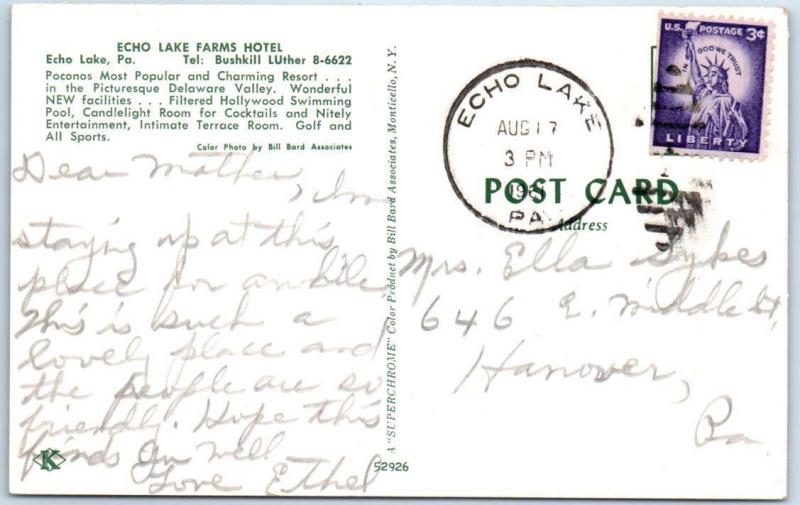 ECHO LAKE FARMS HOTEL
Echo Lake, Pa. Tel: Bushkill LUther 8-6622
Poconos Most Popular and Charming Resort . . .
in the Picturesque Delaware Valley. Wonderful
NEW facilities . . . Filtered Hollywood Swimming
Pool, Candlelight Room for Cocktails and Nitely
Entertainment, Intimate Terrace Room. Golf and
All Sports.
Color Photo by Bill Bard Associates
Dear Mother, Im
staying up at this
place for awhile.
This is such a
lovely place and
the people are so
friendly. Hope this
finds you well
Love Ethel
K
52926
A "SUPERCHROME" Color Product by Bill Bard Associates, Monticello, N. Y.
ECHO LAKE
AUG 17
3 PM
PA
U.S. POSTAGE 3¢
IN GOD WE TRUST
LIBERTY
POST CARD
Address
Mrs. Ella Sykes
646 E. Middle St,
Hanover,
Pa